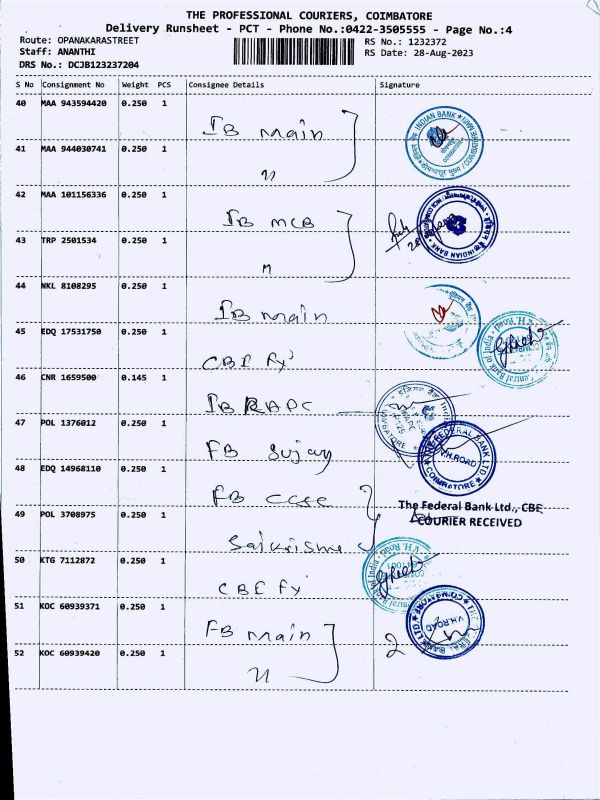 THE PROFESSIONAL COURIERS, COIMBATORE
Delivery Runsheet - PCT - Phone No.:0422-3505555 - Page No.:4
Route: OPANAKARASTREET
RS No.: 1232372
Staff: ANANTHI
RS Date: 28-Aug-2023
DRS No.: DCJB123237204
S No Consignment No Weight PCS Consignee Details Signature
40 MAA 943594420 0.250 1
IB Main
INDIAN BANK
41 MAA 944030741 0.250 1
42 MAA 101156336 0.250 1
IB MCB
INDIAN BANK
43 TRP 2501534 0.250 1
44 NKL 8108295 0.250 1
IB Main
45 EDQ 17531750 0.250 1
CBI Fy
Central Bank of India
V.H. Road
46 CNR 1659500 0.145 1
IB RAPC
47 POL 1376012 0.250 1
FB Sujay
THE FEDERAL BANK LTD
V.H.ROAD
COIMBATORE
48 EDQ 14968110 0.250 1
FB CCSC
The Federal Bank Ltd., CBE
COURIER RECEIVED
49 POL 3708975 0.250 1
Saikrisme
50 KTG 7112872 0.250 1
CBI Fy
V.H. Road
51 KOC 60939371 0.250 1
FB Main
V.H.ROAD
COIMBATORE
2
52 KOC 60939420 0.250 1